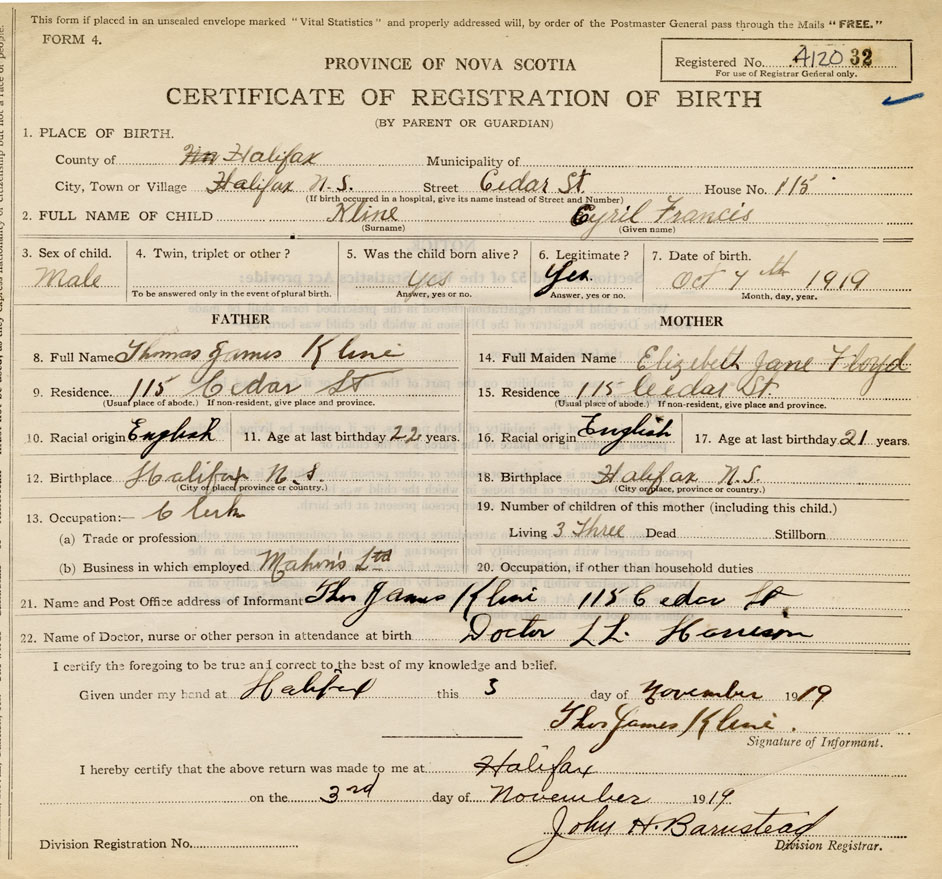 This form if placed in an unsealed envelope marked "Vital Statistics" and properly addressed will, by order of the Postmaster General pass through the Mails "FREE."
FORM 4.
Registered No. A120 32
For use of Registrar General only.
PROVINCE OF NOVA SCOTIA
CERTIFICATE OF REGISTRATION OF BIRTH
(BY PARENT OR GUARDIAN)
1. PLACE OF BIRTH.
County of Halifax Municipality of
City, Town or Village Halifax N.S. Street Cedar St. House No. 115
(If birth occurred in a hospital, give its name instead of Street and Number)
2. FULL NAME OF CHILD Kline Cyril Francis
(Surname) (Given name)
3. Sex of child. 4. Twin, triplet or other? 5. Was the child born alive? 6. Legitimate? 7. Date of birth.
Male Yes Yes Oct 7th 1919
To be answered only in the event of plural birth. Answer, yes or no. Answer, yes or no. Month, day, year.
FATHER MOTHER
8. Full Name Thomas James Kline 14. Full Maiden Name Elizabeth Jane Floyd
9. Residence. 115 Cedar St 15. Residence 115 Ceidar St.
(Usual place of abode.) If non-resident, give place and province. (Usual place of abode.) If non-resident, give place and province.
10. Racial origin English 11. Age at last birthday 22 years. 16. Racial origin English 17. Age at last birthday 21 years.
12. Birthplace Halifax N.S. 18. Birthplace Halifax N.S.
(City or place, province or country.) (City or place, province or country.)
13. Occupation:— Clerk 19. Number of children of this mother (including this child.)
(a) Trade or profession Living 3 Three Dead Stillborn
(b) Business in which employed Mahon's Ltd 20. Occupation, if other than household duties
21. Name and Post Office address of Informant Thos James Kline 115 Cedar St.
22. Name of Doctor, nurse or other person in attendance at birth Doctor Harrison
I certify the foregoing to be true and correct to the best of my knowledge and belief.
Given under my hand at Halifax this 3 day of November 1919
Thos James Kline.
Signature of Informant.
I hereby certify that the above return was made to me at Halifax
on the 3rd day of November 1919.
John H. Barnstead
Division Registration No. Division Registrar.